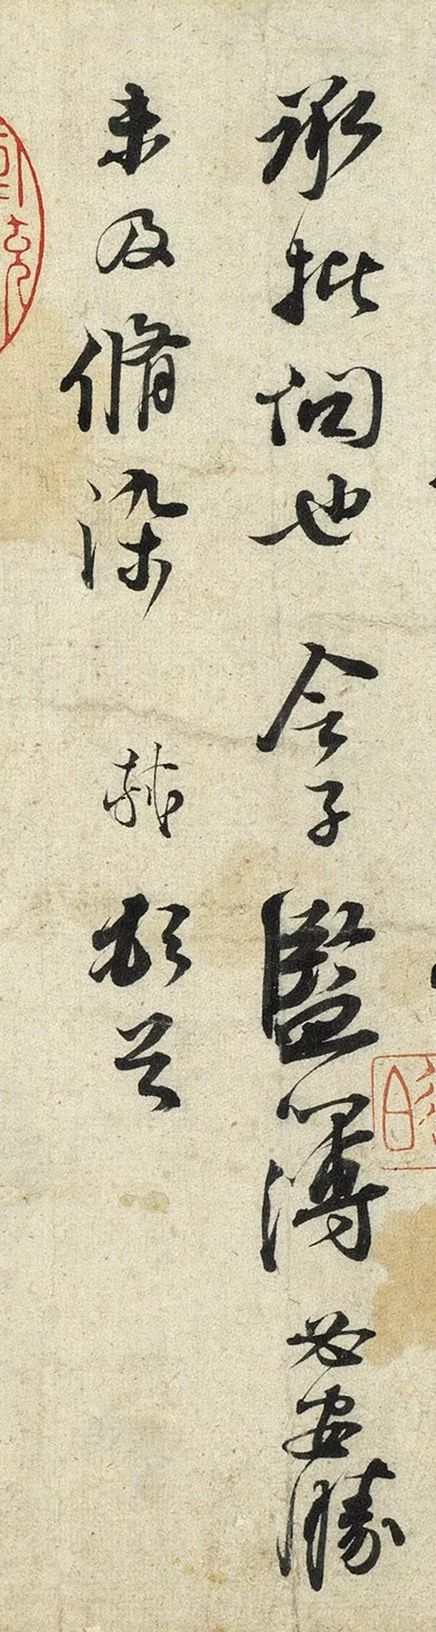 承批也 令子監簿必安勝
未及脩染 軾頓首